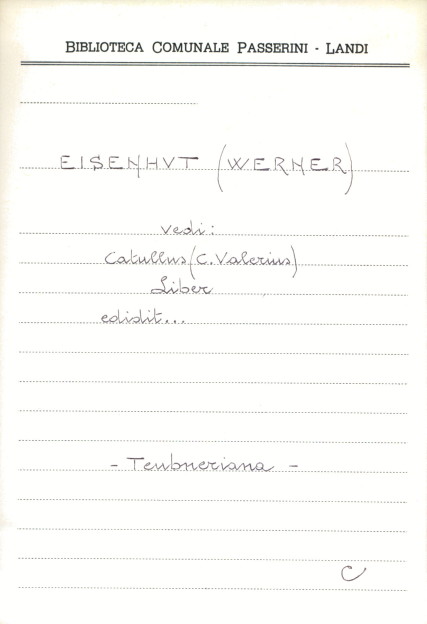 BIBLIOTECA COMUNALE PASSERINI - LANDI
EISENHVT (WERNER)
vedi:
Catullus (C. Valerius)
Liber
edidit...
- Teubneriana -
C